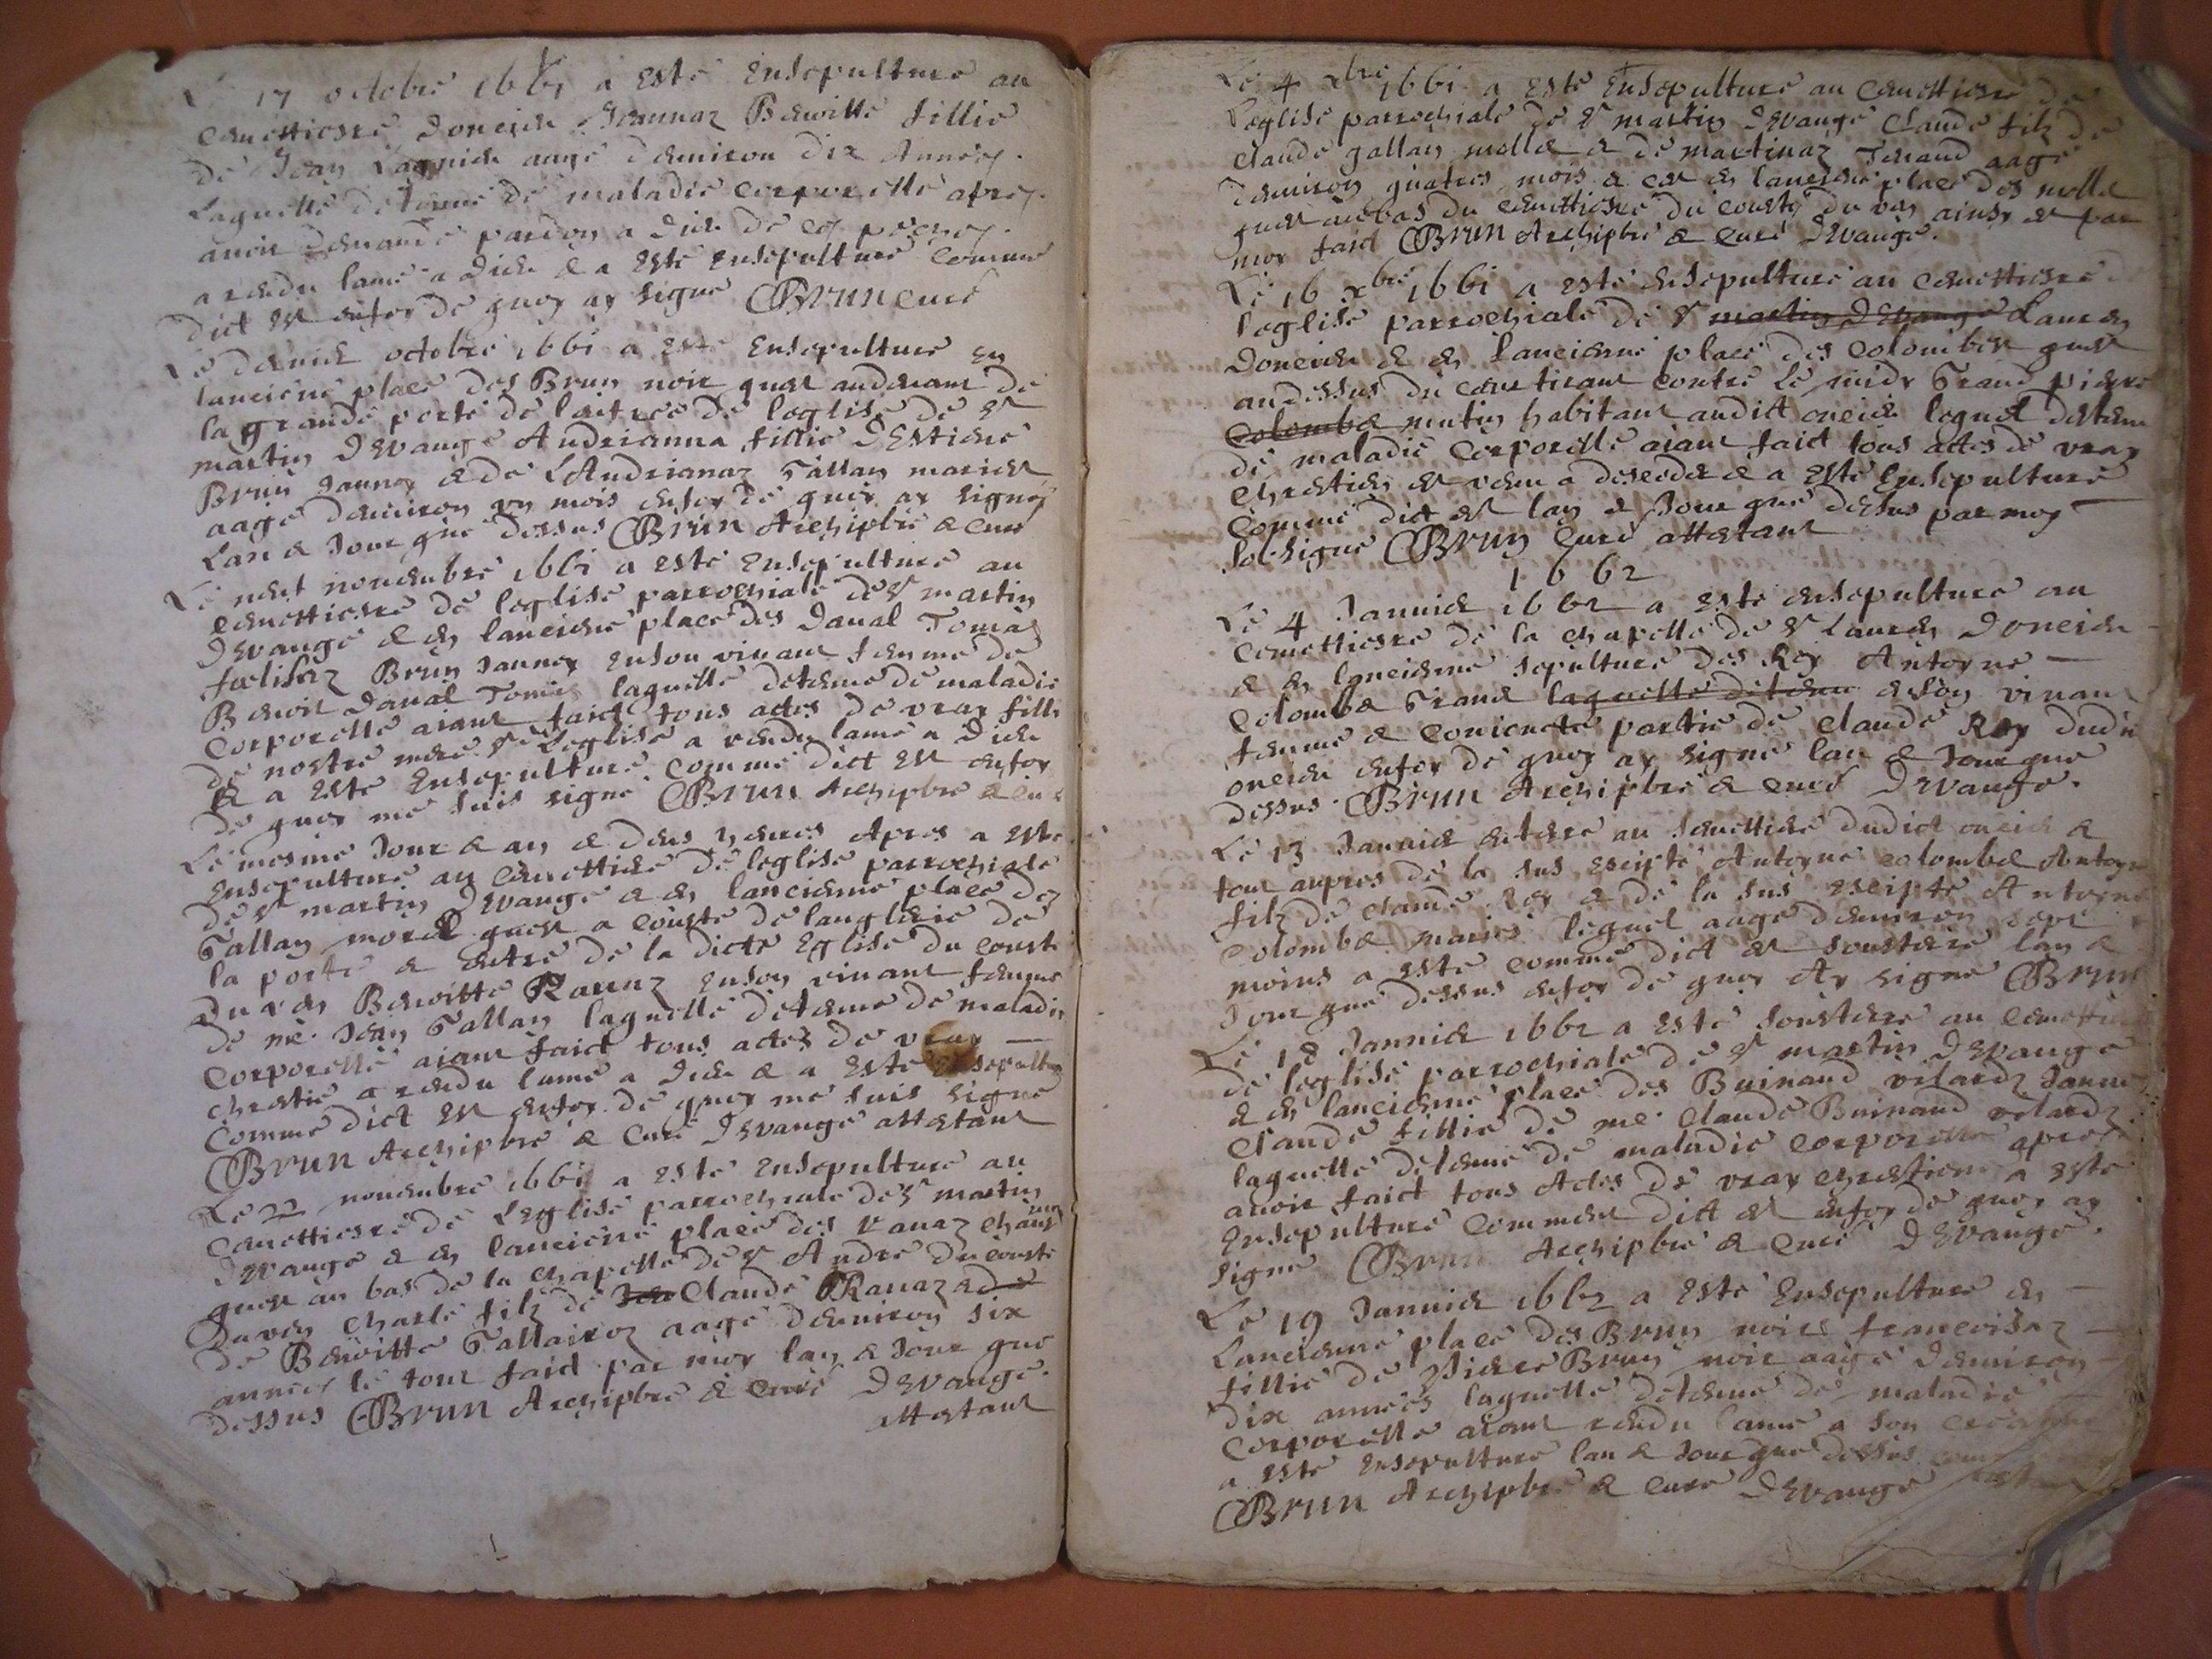 Le 17 octobre 1661 a esté ensepulturé au
cemettiere doneicu Jeannaz Benoitte fillie
de Jean aagé denuiron dix Années.
Laquelle detenue de maladie corporelle apres.
auoir demandé pardon a dieu de ces pechez.
a rendu lame a dieu & a esté ensepulturé comme
dict est enfoy de quoy ay signé Brun curé
Le dernier octobre 1661 a esté ensepulturé en
lanciene place des Brun noir quest audeuant de
la grande porte de laitree de leglise de St
martin Devange Andrianna fillie destiene
Brun Jannoy & de LAndrianaz Tallan mariez
aagé denuiron un mois enfoy de quoy ay signé
Lan & Jour que dessus Brun Archiptre & curé
Le neuf nouembre 1661 a esté ensepulturé au
cemettiere de leglise parrochiale de St martin
Devange & en lanciene place des Daual Tomas
foelisaz Brun Jannoy enson viuant femme de
Benoit Daual Tomas laquelle detenue de maladie
corporelle aiant faict tous actes de vray fille
de nostre mere Ste Leglise a rendu lame a dieu
& a esté ensepulturé comme dict est enfoy
de quoy me suis signé Brun Archiptre & curé
Le mesme Jour & an & deus heures Apres a esté
ensepulturé au cemettiere de leglise parrochiale
de St martin Devange & en lancienne place des
Tallan morel quest a cousté de langlerie de
la porte & entré de la dicte Eglise du cousté
du ven Benoitte Rauaz enson viuant femme
de me. Jean Tallan laquelle detenue de maladie
corporelle aiant faict tous actes de vray
chrestie a rendu lame a dieu & a esté ensepultu
comme dict est enfoy de quoy me suis signé
Brun Archiptre & Curé Devange attestant
Le 22 nouembre 1661 a esté ensepulturé au
cemettiere de Leglise parrochiale de St martin
Devange & en lanciene place des Rauaz
quest au bas de la chapelle de St Andre du cousté
du ven Charle filz de Jea Claude Rauaz & de
de Benoitte Tallairoz aagé denuiron six
annees le tout faict par moy lan & Jour que
dessus Brun Archiptre & Curé Devange.
attestant
Le 4 xbre 1661 a esté ensepulturé au cemettiere de
leglise parrochiale de St martin Devange Claude filz de
claude gallan mollet & de martinaz Terand aagé
denuiron quatres mois & est en lanciene place des mollet
quest aubas du cemettiere du cousté du ven ainsy est par
moy faict Brun Archiptre & Curé Devange.
Le 16 xbre 1661 a esté ensepulturé au cemettiere de
leglise parrochiale de St martin Devange Lauren
doneicu & en lancienne place des Colomber quest
audessus du tirant contre le midy Grand pierre
Colombet mutin habitant audict oneicu lequel detenu
de maladie corporelle aiant faict tous actes de vray
chrestien est venu a deceder & a esté ensepulturé
comme dict est lan & Jour que dessus par moy
Sousigné Brun curé attestant
1662
Le 4 Januier 1662 a esté ensepulturé au
cemettiere de la chapelle de St Lauren doneicu
& en lancienne sepulture des Rey Antoyne
colombet Grand laquelle detenue enson viuant
femme & conioncte partie de claude Rey dudit
oneicu enfoy de quoy ay signé lan & Jour que
dessus. Brun Archiptre & curé Devange.
Le 13 Januier enterré au semettiere dudict oneicu &
tout aupres de la sus escripte Antoyne colombet Antoyne
filz de claude Rey & de la sus escripte Antoyne
colombet mariés lequel aagé denuiron sept
moins a esté comme dict est sousterré lan &
Jour que dessus enfoy de quoy Ay signé Brun
Le 18 Januier 1662 a esté sousterré au cemettiere
de leglise parrochiale de St martin Devange
& en lancienne place des Buinand velardz Janne
Claude fillie de me. Claude Buinand velardz
laquelle detenue de maladie corporelle apres
auoir faict tous Actes de vray chrestienne a esté
ensepulturé comment dict est enfoy de quoy ay
signé Brun Archiptre & Curé Devange.
Le 19 Januier 1662 a esté ensepulturé en
Lancienne place des Brun noirs francoisaz
fillie de Pierre Brun noir aagé denuiron
dix années laquelle detenue de maladie
corporelle aiant rendu lame a son createur
a esté ensepulturé lan & Jour que dessus
Brun Archiptre & Curé Devange